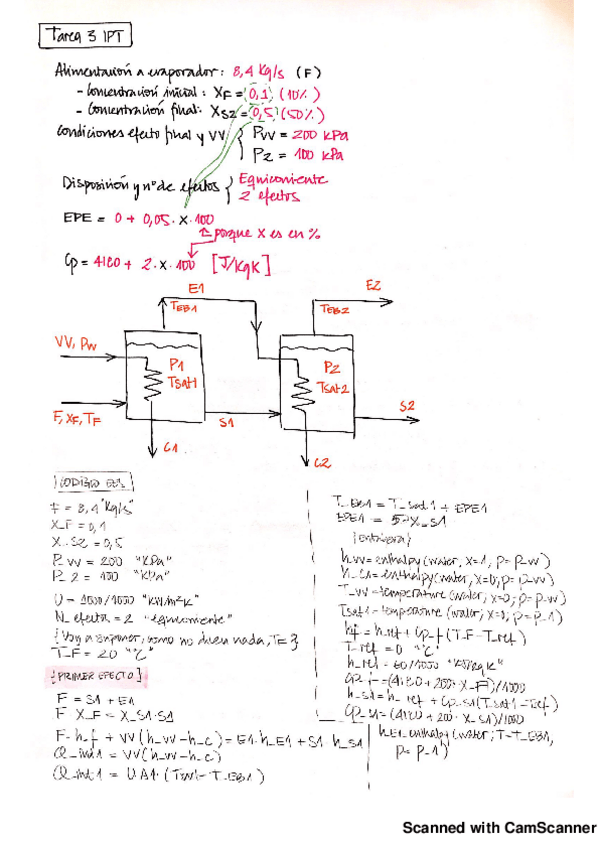 Tarea 3 IPT
Alimentación a evaporador: 8,4 Kg/s (F)
- Concentración inicial: XF = 0,1 (10%)
- Concentración final: XS2 = 0,5 (50%)
Condiciones efecto final y VV { PVV = 200 KPa
P2 = 100 KPa
Disposición y nº de efectos { Equicorriente
2 efectos
EPE = 0 + 0,05 · X · 100
porque X es en %
Cp = 4180 + 2 · X · 100 [J/KgK]
E1
E2
TEB1
TEB2
VV, PW
P1
Tsat1
P2
Tsat2
F, XF, TF
S1
S2
C1
C2
CODIGO EES
F = 8,4 "Kg/s"
X_F = 0,1
X_S2 = 0,5
P_VV = 200 "KPa"
P_2 = 100 "KPa"
N_efectos = 2 "equicorriente"
{Voy a suponer, como no dicen nada, TF}
T_F = 20 "ºC"
{PRIMER EFECTO}
F = S1 + E1
F X_F = X_S1·S1
F·h_f + VV(h_vv-h_c) = E1·h_E1 + S1 h_S1
Q_int1 = VV(h_vv-h_c)
T_EB1 = T_sat1 + EPE1
EPE1 = 5·X_S1
h_vv = enthalpy(water, X=1, P=P_vv)
h_C1 = enthalpy(water, X=0, P=P_vv)
T_vv = temperature(water, X=0, P=P_vv)
Tsat1 = temperature(water, X=0, P=P_1)
hf = h_ref + Cp_f(T_F-T_ref)
T_ref = 0 "ºC"
Cp_f = (4180 + 200·X_F)/1000
h_S1 = h_ref + Cp_S1(Tsat1-Tref)
Cp_S1 = (4180 + 200·X_S1)/1000
P=P_1)
Scanned with CamScanner